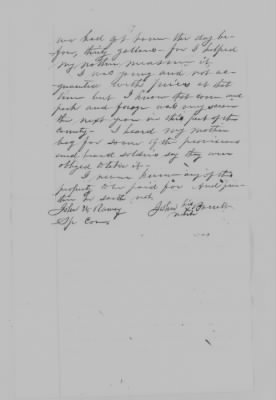 we had got from the day be-
fore, thirty gallons - for I helped
my mother measure it.
I was young and not ac-
quainted with prices at that
time but I know that corn and
pork and forage was very scarce
the next year in this part of the
county - I heard my mother
beg for some of the provisions
and heard soldiers say they were
obliged to take it -
I never knew any of this
property to be paid for. And fur-
ther he saith not.
John W. Raney
Sp Com
John his x mark